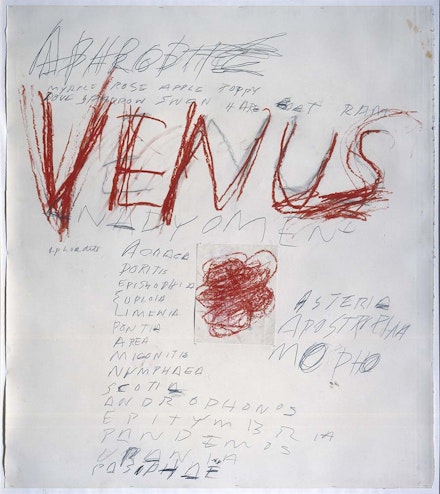 APHRODITE
MYRTLE ROSE APPLE POPPY
DOVE SPARROW SWAN HARE GOAT RAM
VENUS
ANADYOMENE
APHRODITE
DORITIS
EPISTROPHIA
EUPLOIA
LIMENIA
PONTIA
AREA
MIGONITIS
NYMPHAEA
SCOTIA
ANDROPHONOS
EPITYMBRIA
PANDEMOS
URANIA
PASIPHAE
ASTERIA
APOSTROPHIA
MORPHO